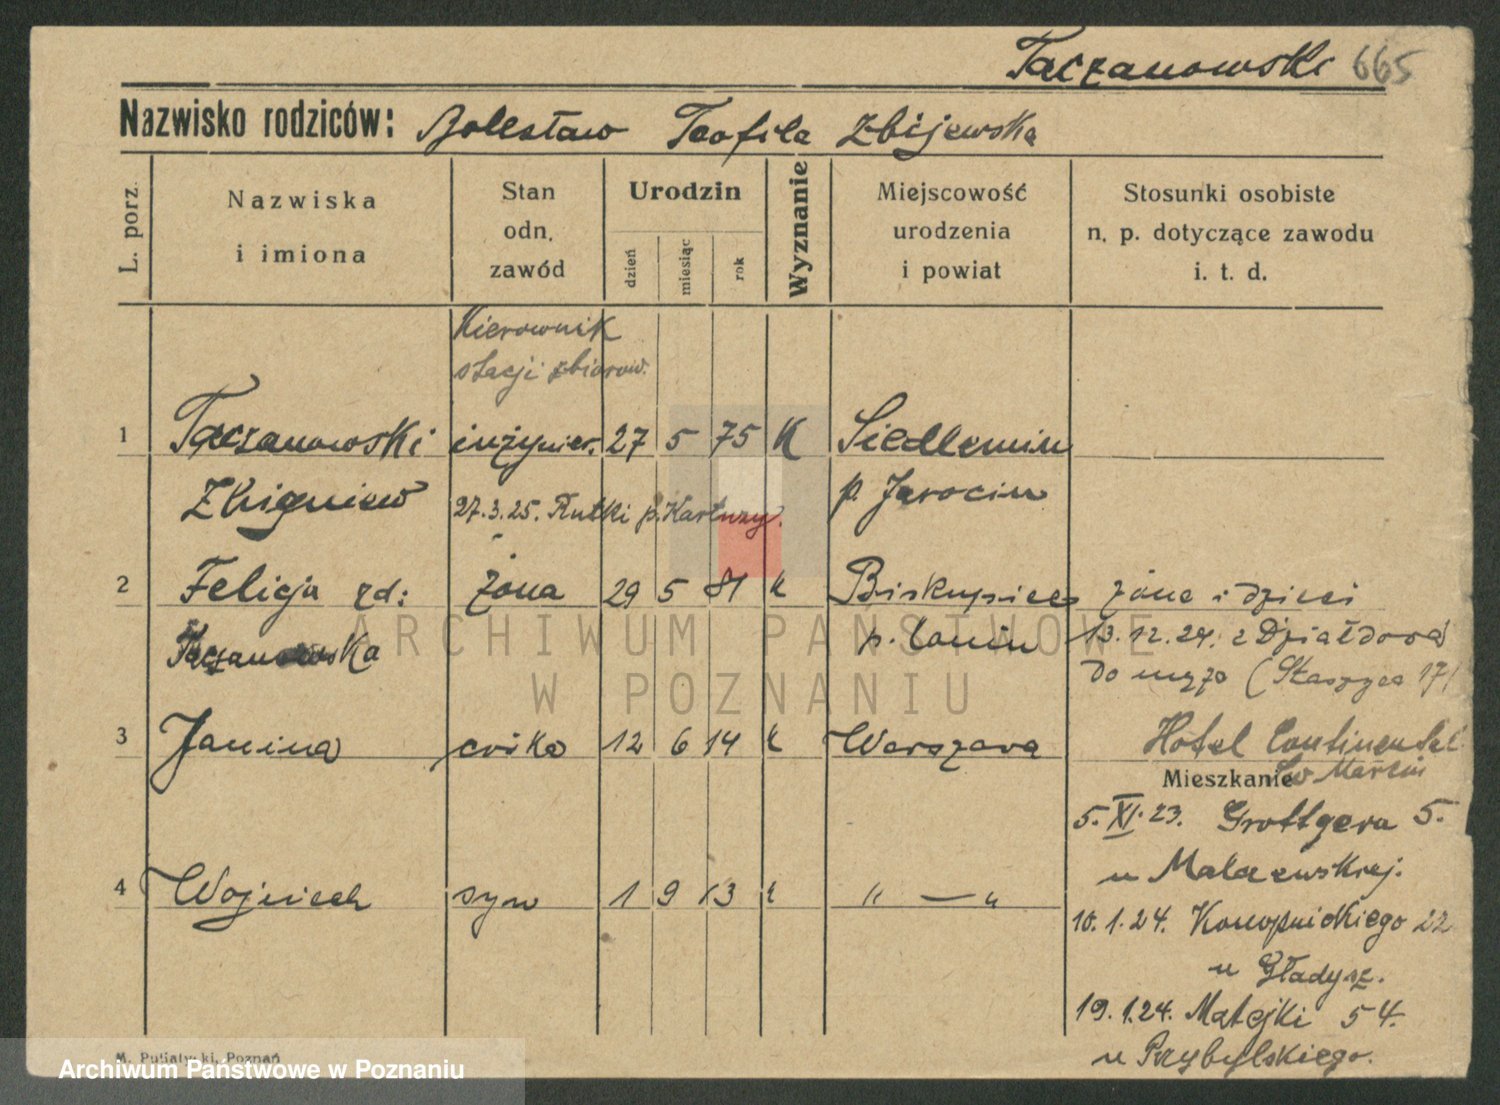 Taczanowski 665
Nazwisko rodziców: Bolesław Teofila Zbijewska
L. porz.
Nazwiska
i imiona
Stan
odn.
zawód
Urodzin
dzień
miesiąc
rok
Wyznanie
Miejscowość
urodzenia
i powiat
Stosunki osobiste
n. p. dotyczące zawodu
i. t. d.
Kierownik
stacji zbiorow.
1 Taczanowski inżynier. 27 5 75 K Siedlemin
Zbigniew 27.3.25. Rutki p. Kartuzy. p. Jarocin
2 Felicja zd: żona 29 5 81 k Biskupiec żona i dzieci
Taczanowska p. Lonin 13.12.24. z Działdowa
do męża (Staszyca 17)
3 Janina córka 12 6 14 k Warszawa Hotel Continental
Św Marcin
Mieszkanie
5.XI.23. Grottgera 5.
u Malczewskiej.
4 Wojciech syn 1 9 13 k " — "
10.1.24. Konopnickiego 22
u Gładysz.
19.1.24. Matejki 54.
u Przybylskiego.
M. Putiatycki, Poznań
ARCHIWUM PAŃSTWOWE
W POZNANIU
Archiwum Państwowe w Poznaniu